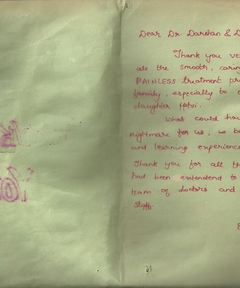 Dear Dr. Darshan & D
Thank you ve
all the smooth, carin
PAINLESS treatment pro
family, especially to o
daughter
What could ha
nightmare for us, we be
and learning experience
Thank you for all th
had been extended to
team of doctors and
staff.